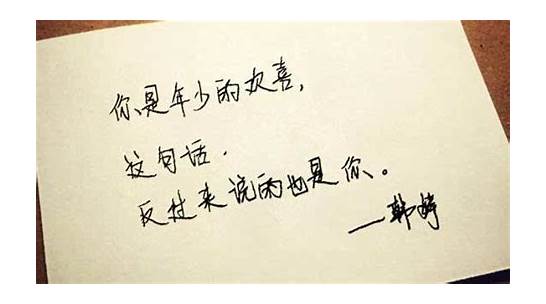 你是年少的欢喜,
这句话.
反过来说的也是你。
—韩婷